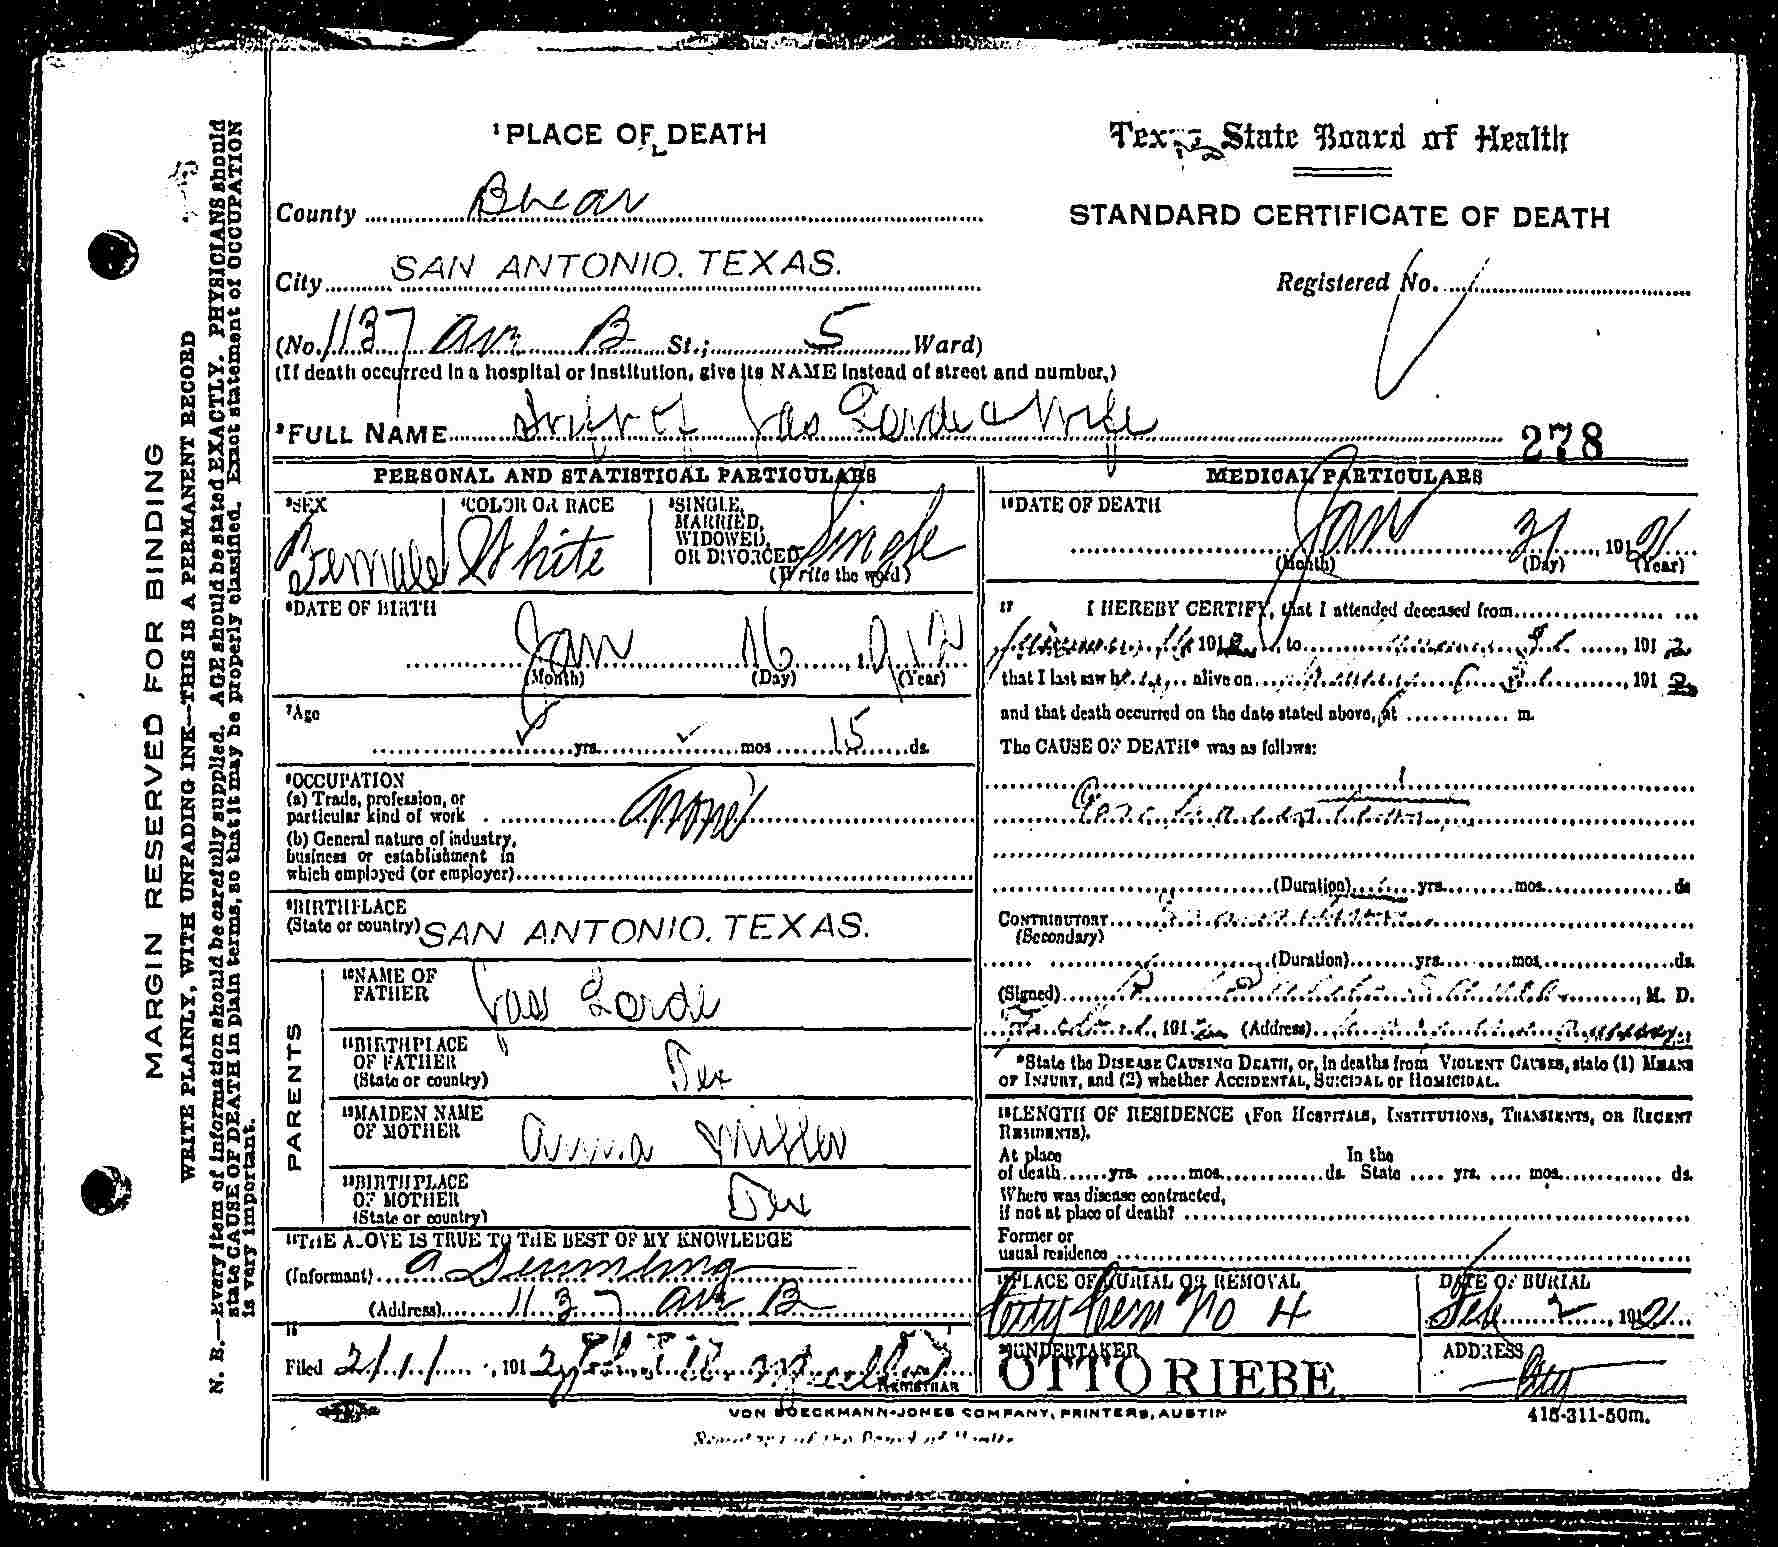 ¹PLACE OF DEATH
Texas State Board of Health
County Bexar
STANDARD CERTIFICATE OF DEATH
City SAN ANTONIO, TEXAS.
Registered No.
(No. 1137 Ave B St.; 5 Ward)
(If death occurred in a hospital or institution, give its NAME instead of street and number,)
²FULL NAME Inft of Jas Lorde & Wife
278
PERSONAL AND STATISTICAL PARTICULARS
³SEX Female
⁴COLOR OR RACE White
⁵SINGLE, MARRIED, WIDOWED, OR DIVORCED (Write the word) Single
⁶DATE OF BIRTH
Jan 16, 1912
(Month) (Day) (Year)
⁷Age
yrs. mos 15 ds.
⁸OCCUPATION
(a) Trade, profession, or
particular kind of work None
(b) General nature of industry,
business or establishment in
which employed (or employer)
⁹BIRTHPLACE
(State or country) SAN ANTONIO, TEXAS.
PARENTS
¹⁰NAME OF
FATHER Jas Lorde
¹¹BIRTHPLACE
OF FATHER
(State or country) Tex
¹²MAIDEN NAME
OF MOTHER Anna Miller
¹³BIRTHPLACE
OF MOTHER
(State or country) Tex
¹⁴THE ABOVE IS TRUE TO THE BEST OF MY KNOWLEDGE
(Informant) A
(Address) 1137 Ave B
15
Filed 2/1, 1912
REGISTRAR
MEDICAL PARTICULARS
¹⁶DATE OF DEATH
Jan 31, 1912
(Month) (Day) (Year)
17 I HEREBY CERTIFY, that I attended deceased from
1912, to , 1912
that I last saw h alive on , 1912
and that death occurred on the date stated above, at m.
The CAUSE OF DEATH* was as follows:
(Duration) yrs. mos. ds
CONTRIBUTORY
(Secondary)
(Duration) yrs. mos. ds.
(Signed) , M. D.
, 1912 (Address)
*State the DISEASE CAUSING DEATH, or, in deaths from VIOLENT CAUSES, state (1) MEANS
OF INJURY, and (2) whether ACCIDENTAL, SUICIDAL or HOMICIDAL.
¹⁸LENGTH OF RESIDENCE (FOR HOSPITALS, INSTITUTIONS, TRANSIENTS, OR RECENT
RESIDENTS).
At place In the
of death yrs. mos. ds. State yrs. mos. ds.
Where was disease contracted,
if not at place of death?
Former or
usual residence
¹⁹PLACE OF BURIAL OR REMOVAL
City Cem No 4
DATE OF BURIAL
Feb 2, 1912
²⁰UNDERTAKER
OTTO RIEBE
ADDRESS
City
VON BOECKMANN-JONES COMPANY, PRINTERS, AUSTIN
415-311-50m.
MARGIN RESERVED FOR BINDING
WRITE PLAINLY, WITH UNFADING INK—THIS IS A PERMANENT RECORD
N. B.—Every item of information should be carefully supplied. AGE should be stated EXACTLY. PHYSICIANS should
state CAUSE OF DEATH in plain terms, so that it may be properly classified. Exact statement of OCCUPATION
is very important.